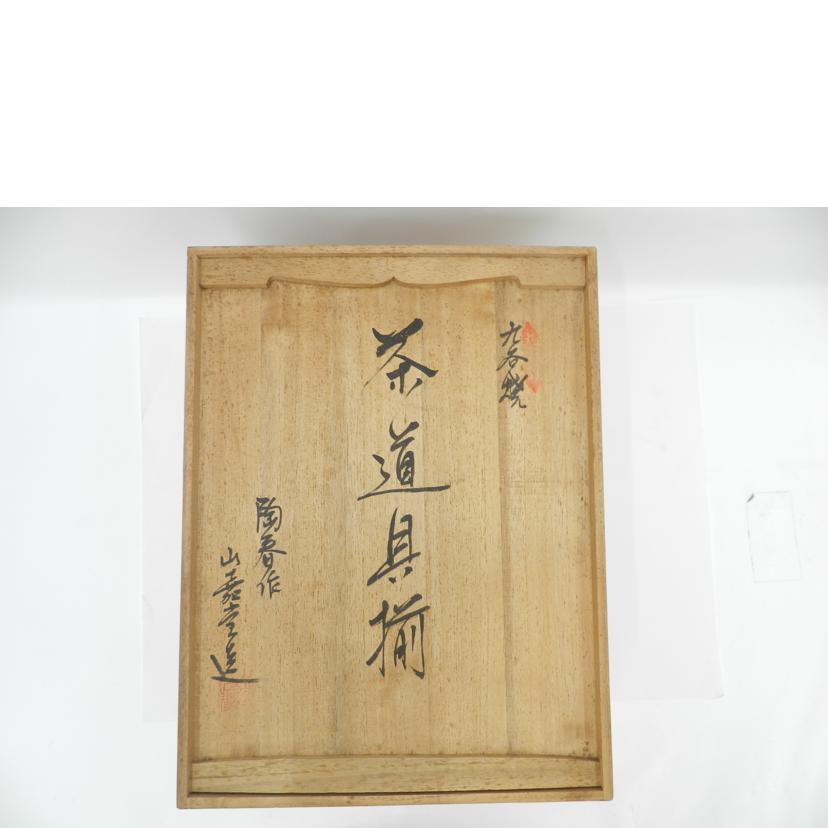 九谷焼
茶道具揃
陶春作
山嘉堂造